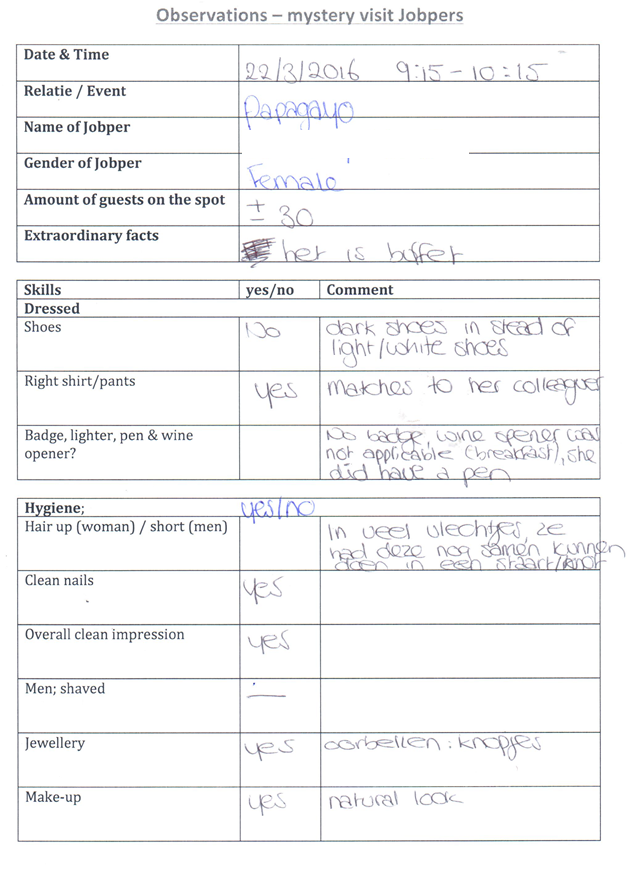 Observations – mystery visit Jobpers
Date & Time
22/3/2016 9:15 - 10:15
Relatie / Event
Papagayo
Name of Jobper
Gender of Jobper
Female
Amount of guests on the spot
± 30
Extraordinary facts
het is buffet
Skills yes/no Comment
Dressed
Shoes No dark shoes in stead of
light/white shoes
Right shirt/pants yes matches to her colleagues
Badge, lighter, pen & wine
opener?
No badge, wine opener was
not applicable (breakfast), she
did have a pen
Hygiene; yes/no
Hair up (woman) / short (men)
In veel vlechtjes, ze
had deze nog samen kunnen
doen in een staart/knot
Clean nails yes
Overall clean impression yes
Men; shaved —
Jewellery yes oorbellen : knopjes
Make-up yes natural look